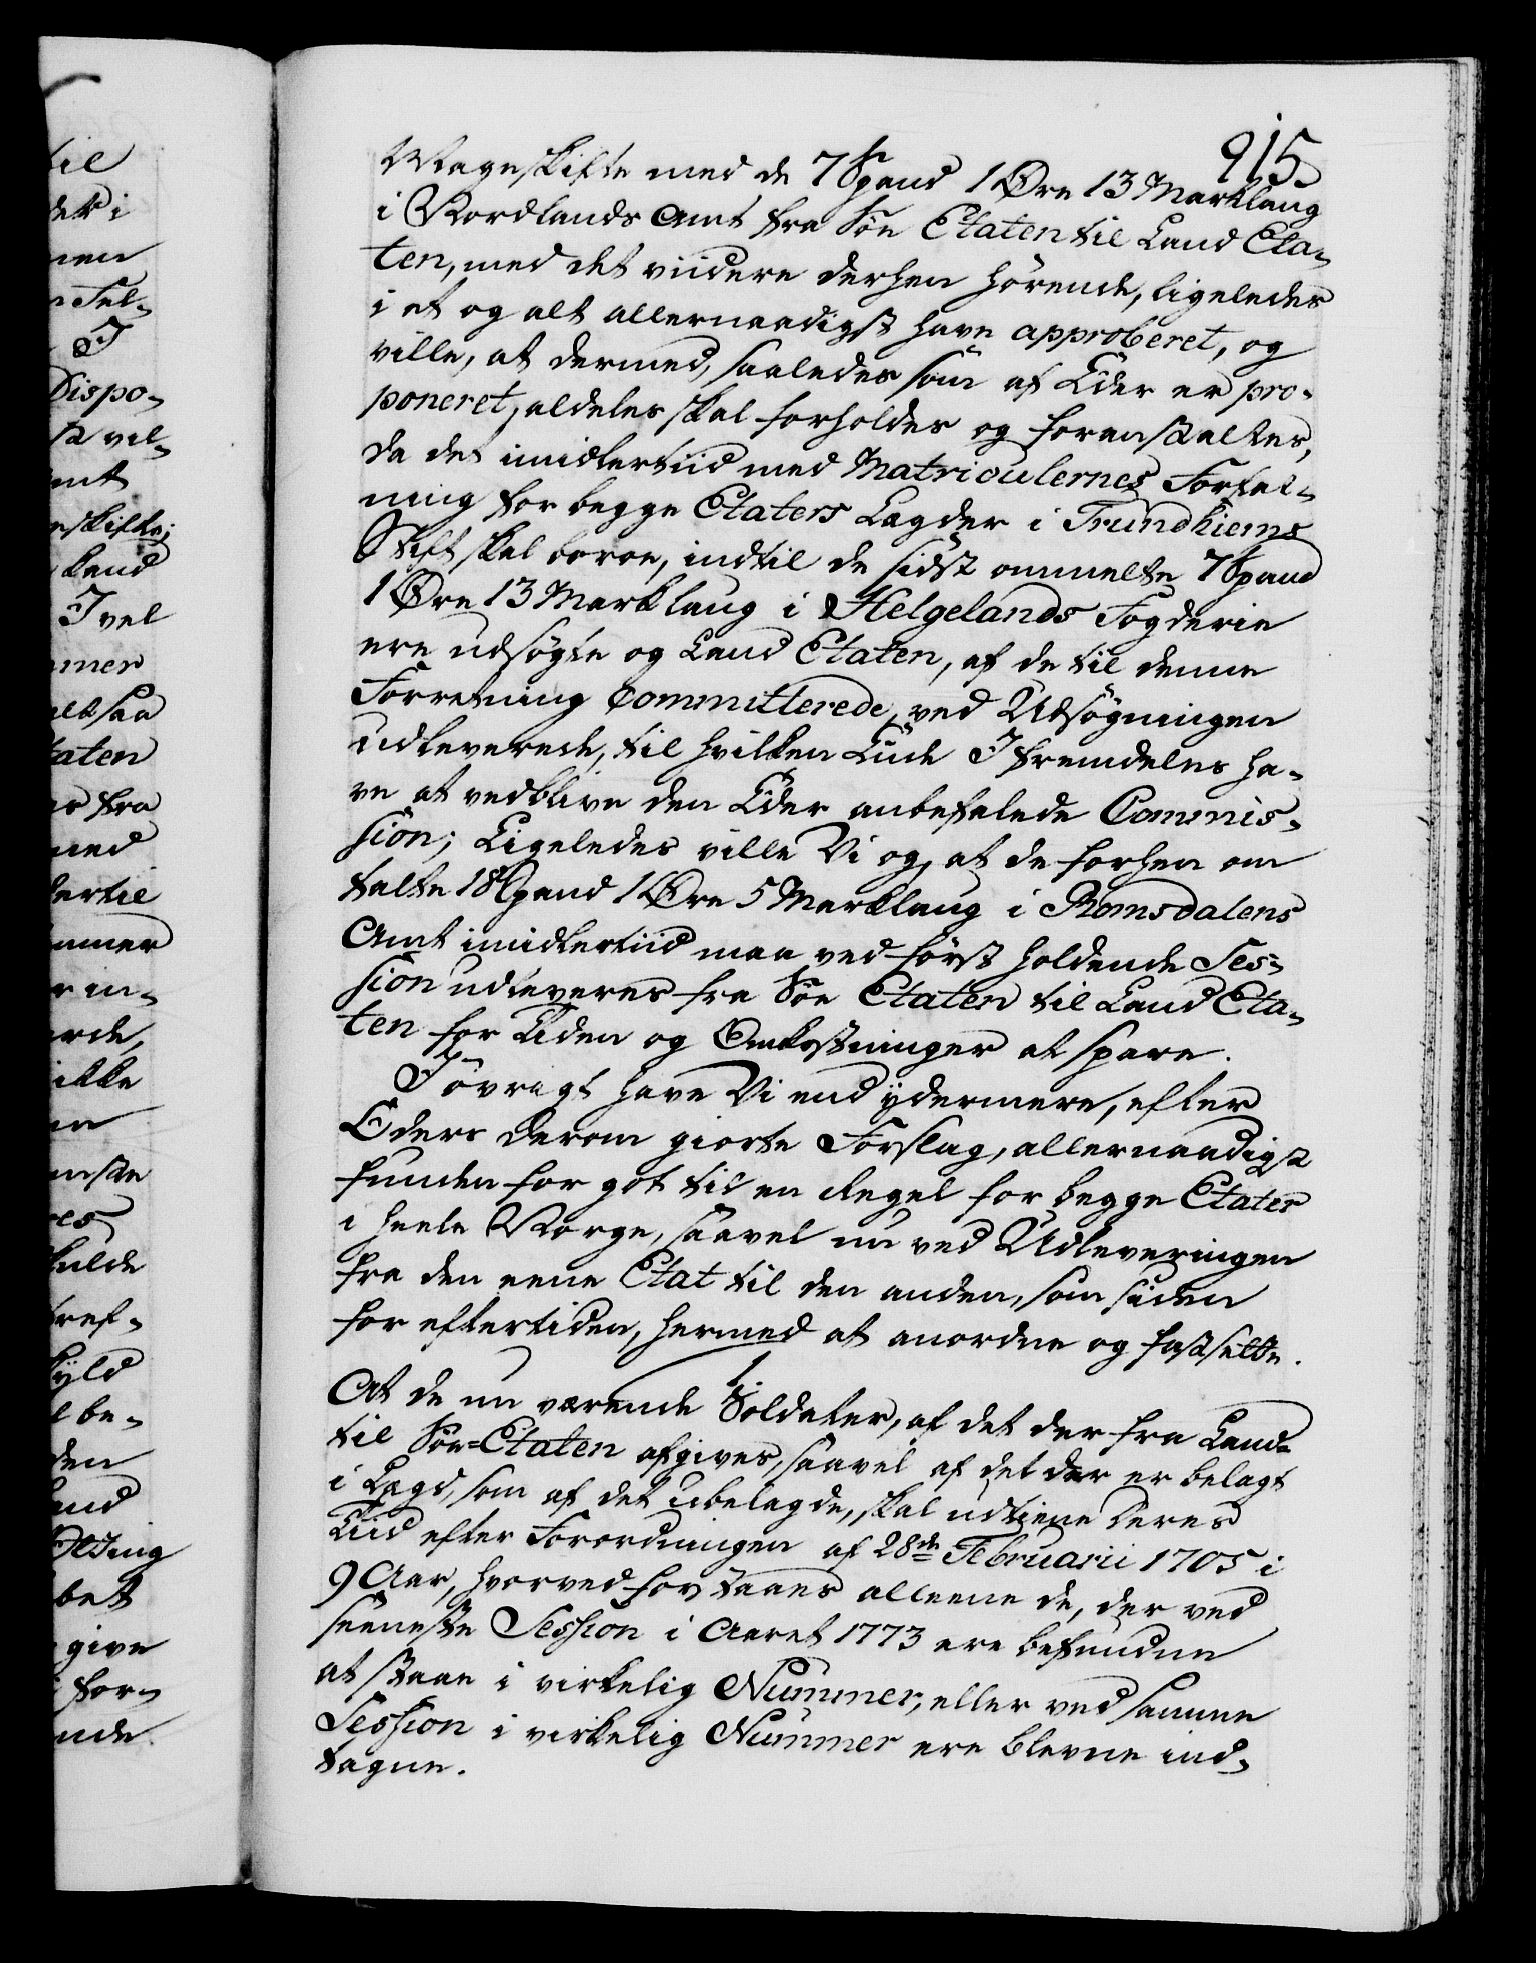 915.
Mageskifte med de 7 Spand 1 Øre 13 Marklaug
i Nordlands Amt fra Søe Etaten til Land Eta-
ten, med det viidere derhen hørende, ligeledes
i et og alt allernaadigst have approberet, og
ville, at dermed, saaledes som af Eder er pro-
poneret, aldeles skal forholdes og foranstaltes,
da det imidlertiid med Matriculernes Forfat-
ning for begge Etaters Lægder i Trundhiems
Stift skal beroe, indtil de sidst ommelte 7 Spand
1 Øre 13 Marklaug i Helgelands Fogderie
ere udsøgte og Land Etaten, af de til denne
Forretning Committerede, ved Udsøgningen
udleverede, til hvilken Ende I fremdeles ha-
ve at vedblive den Eder anbefalede Commis-
sion; Ligeledes ville Vi og, at de forhen om
talte 18 Spand 1 Øre 5 Marklaug i Romsdalens
Amt imidlertiid maa ved først holdende Ses-
sion udleveres fra Søe Etaten til Land Eta-
ten for Tiden og Omkostninger at spare.
I øvrigt have Vi end ydermere, efter
Eders derom giorte Forslag, allernaadigst
funden for got til en Regel for begge Etater
i heele Norge, saavel nu ved Udleveringen
fra den eene Etat til den anden, som siden
for eftertiden, hermed at anordne og fastsette.
1.
At de nu værende Soldater, af det der fra Land-
til Søe-Etaten afgives, saavel af det der er belagt
i Lægd, som af det ubelagde, skal udtiene deres
Tiid efter Forordningen af 28de Februarii 1705 i
9 Aar, hvorved forstaaes alleene de, der ved
seeneste Session i Aaret 1773 ere befundne
at staae i virkelig Nummer, eller ved samme
Session i virkelig Nummer ere blevne ind-
tagne.